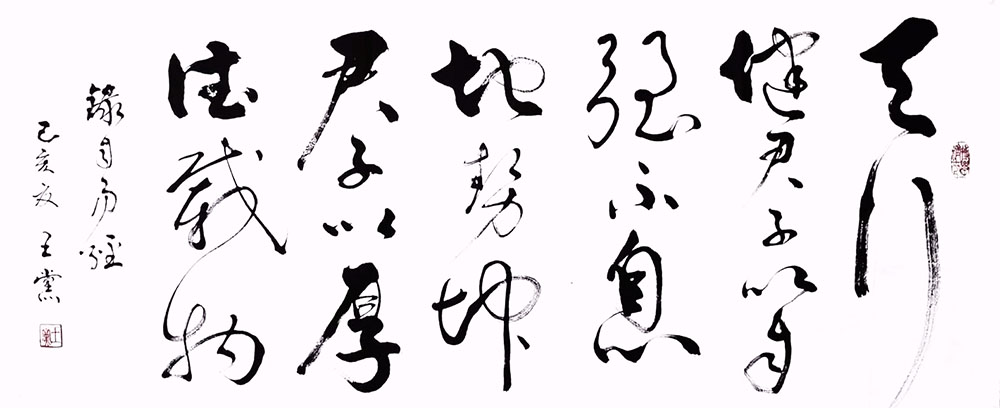 天行
健君子以自
强不息
地势坤
君子以厚
德载物
錄自易經
己亥夏王黨